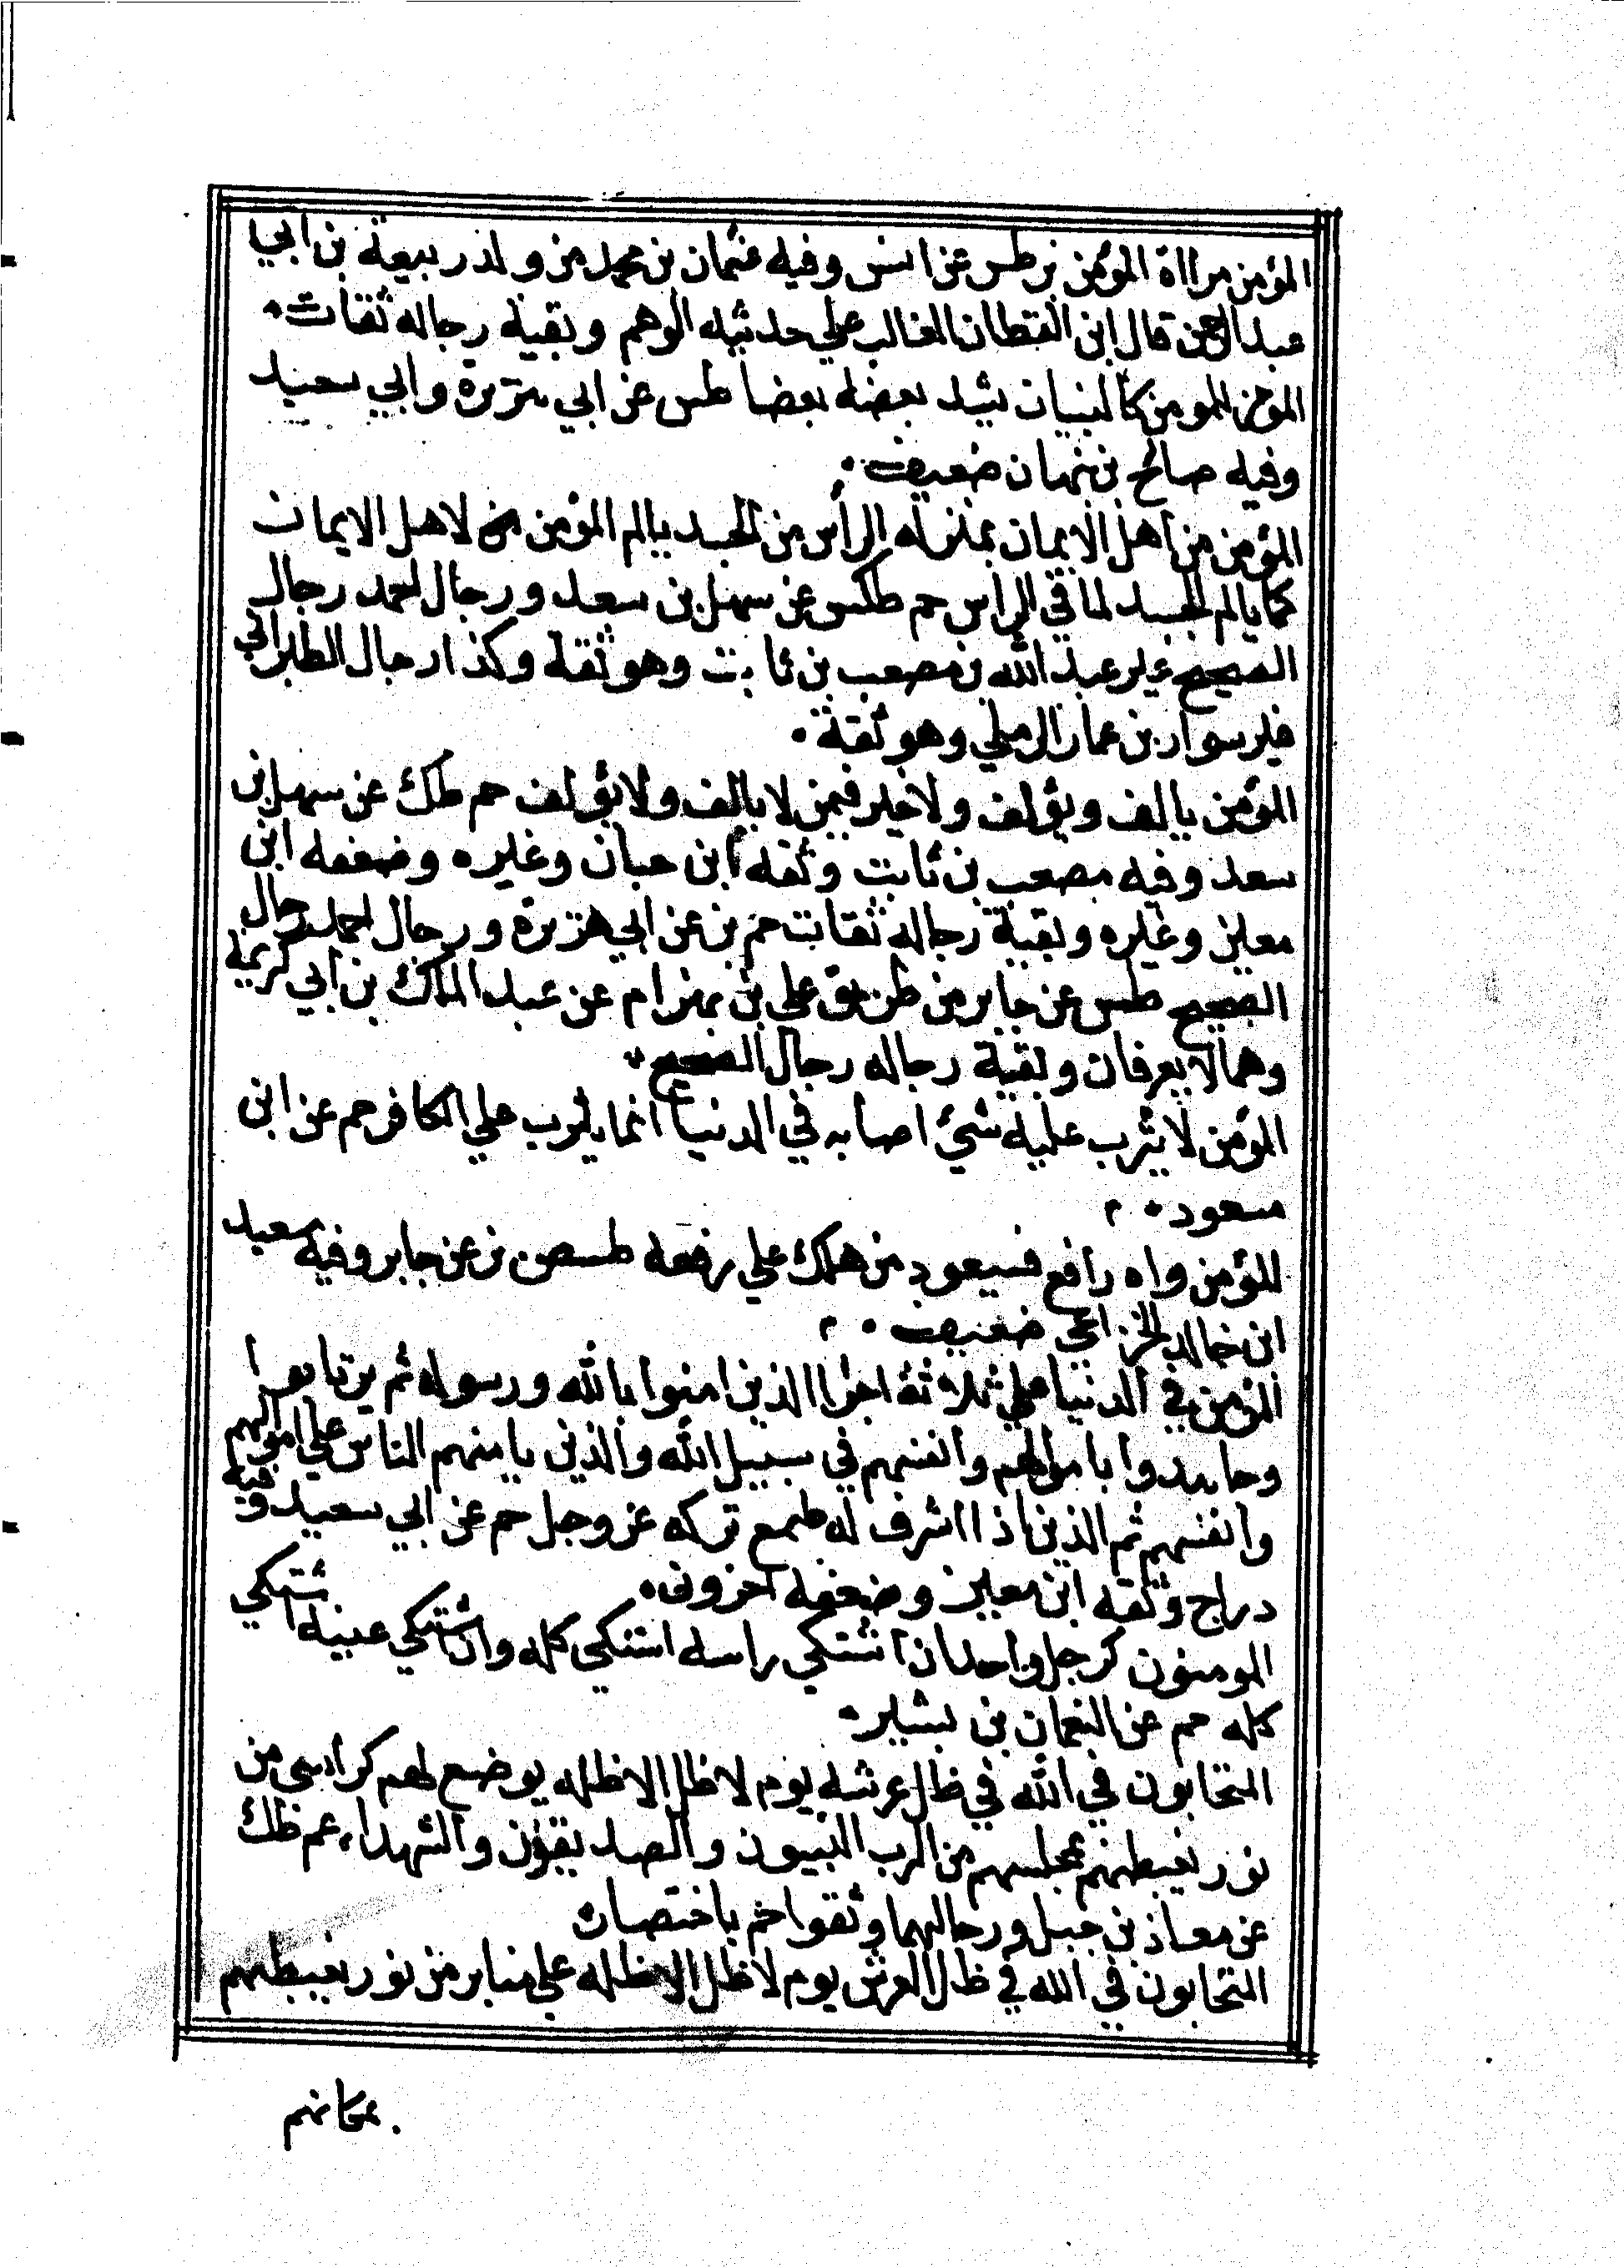 المؤمن مرااة المؤمن بز طس عن انس وفيه عثمان بن محمد من ولد ربيعة بن ابي
عبد الرحمن قال ابن القطان الغالب علي حديثه الوهم وبقية رجاله ثقات
المؤمن للمومن كالبنيان يشد بعضه بعضا طس عن ابي هريرة وابي سعيد
وفيه صالح بن نبهان ضعيف
المؤمن من اهل الايمان بمنزلة الراس من الجسد يالم المؤمن لاهل الايمان
كما يالم الجسد لما في الراس حم طكس عن سهل بن سعد ورجال احمد رجال
الصحيح غير عبد الله بن مصعب بن ثابت وهو ثقة وكذا رجال الطبراني
غير سوار بن عمار الرملي وهو ثقة
المؤمن يالف ويؤلف ولا خير فيمن لا يالف ولا يؤلف حم طك عن سهل بن
سعد وفيه مصعب بن ثابت وثقه ابن حبان وغيره وضعفه ابن
معين وغيره وبقية رجاله ثقات حم بز عن ابي هريرة ورجال احمد رجال
الصحيح طس عن جابر من طريق علي بن بهرام عن عبد الملك بن ابي كريمة
وهما لا يعرفان وبقية رجاله رجال الصحيح
المؤمن لا يثرب عليه شئ اصابه في الدنيا انما يثرب علي الكافر حم عن ابن
مسعود
المؤمن واه رافع فسيعود من هلك علي رقعه طسص بز عن جابر وفيه سعيد
ابن خالد الخزاعي ضعيف
المؤمن في الدنيا علي ثلاثة اجزا الذين امنوا بالله ورسوله ثم يرتابوا
وجاهدوا باموالهم وانفسهم في سبيل الله والذين يامنهم الناس علي اموالهم
وانفسهم ثم الذين اذا اشرف له طمع تركه عز وجل حم عن ابي سعيد وفيه
دراج وثقه ابن معين وضعفه اخرون
المومنون كرجل واحد ان اشتكي راسه اشتكي كله وان اشتكي عينه اشتكي
كله حم عن النعمان بن بشير
المتحابون في الله في ظل عرشه يوم لا ظل الا ظله يوضع لهم كراسي من
نور يغبطهم بمجلسهم من الرب النبيون والصديقون والشهداء عم طك
عن معاذ بن جبل ورجالهما وثقوا حم باختصار
المتحابون في الله في ظل العرش يوم لا ظل الا ظله علي منابر من نور يغبطهم
بمكانهم